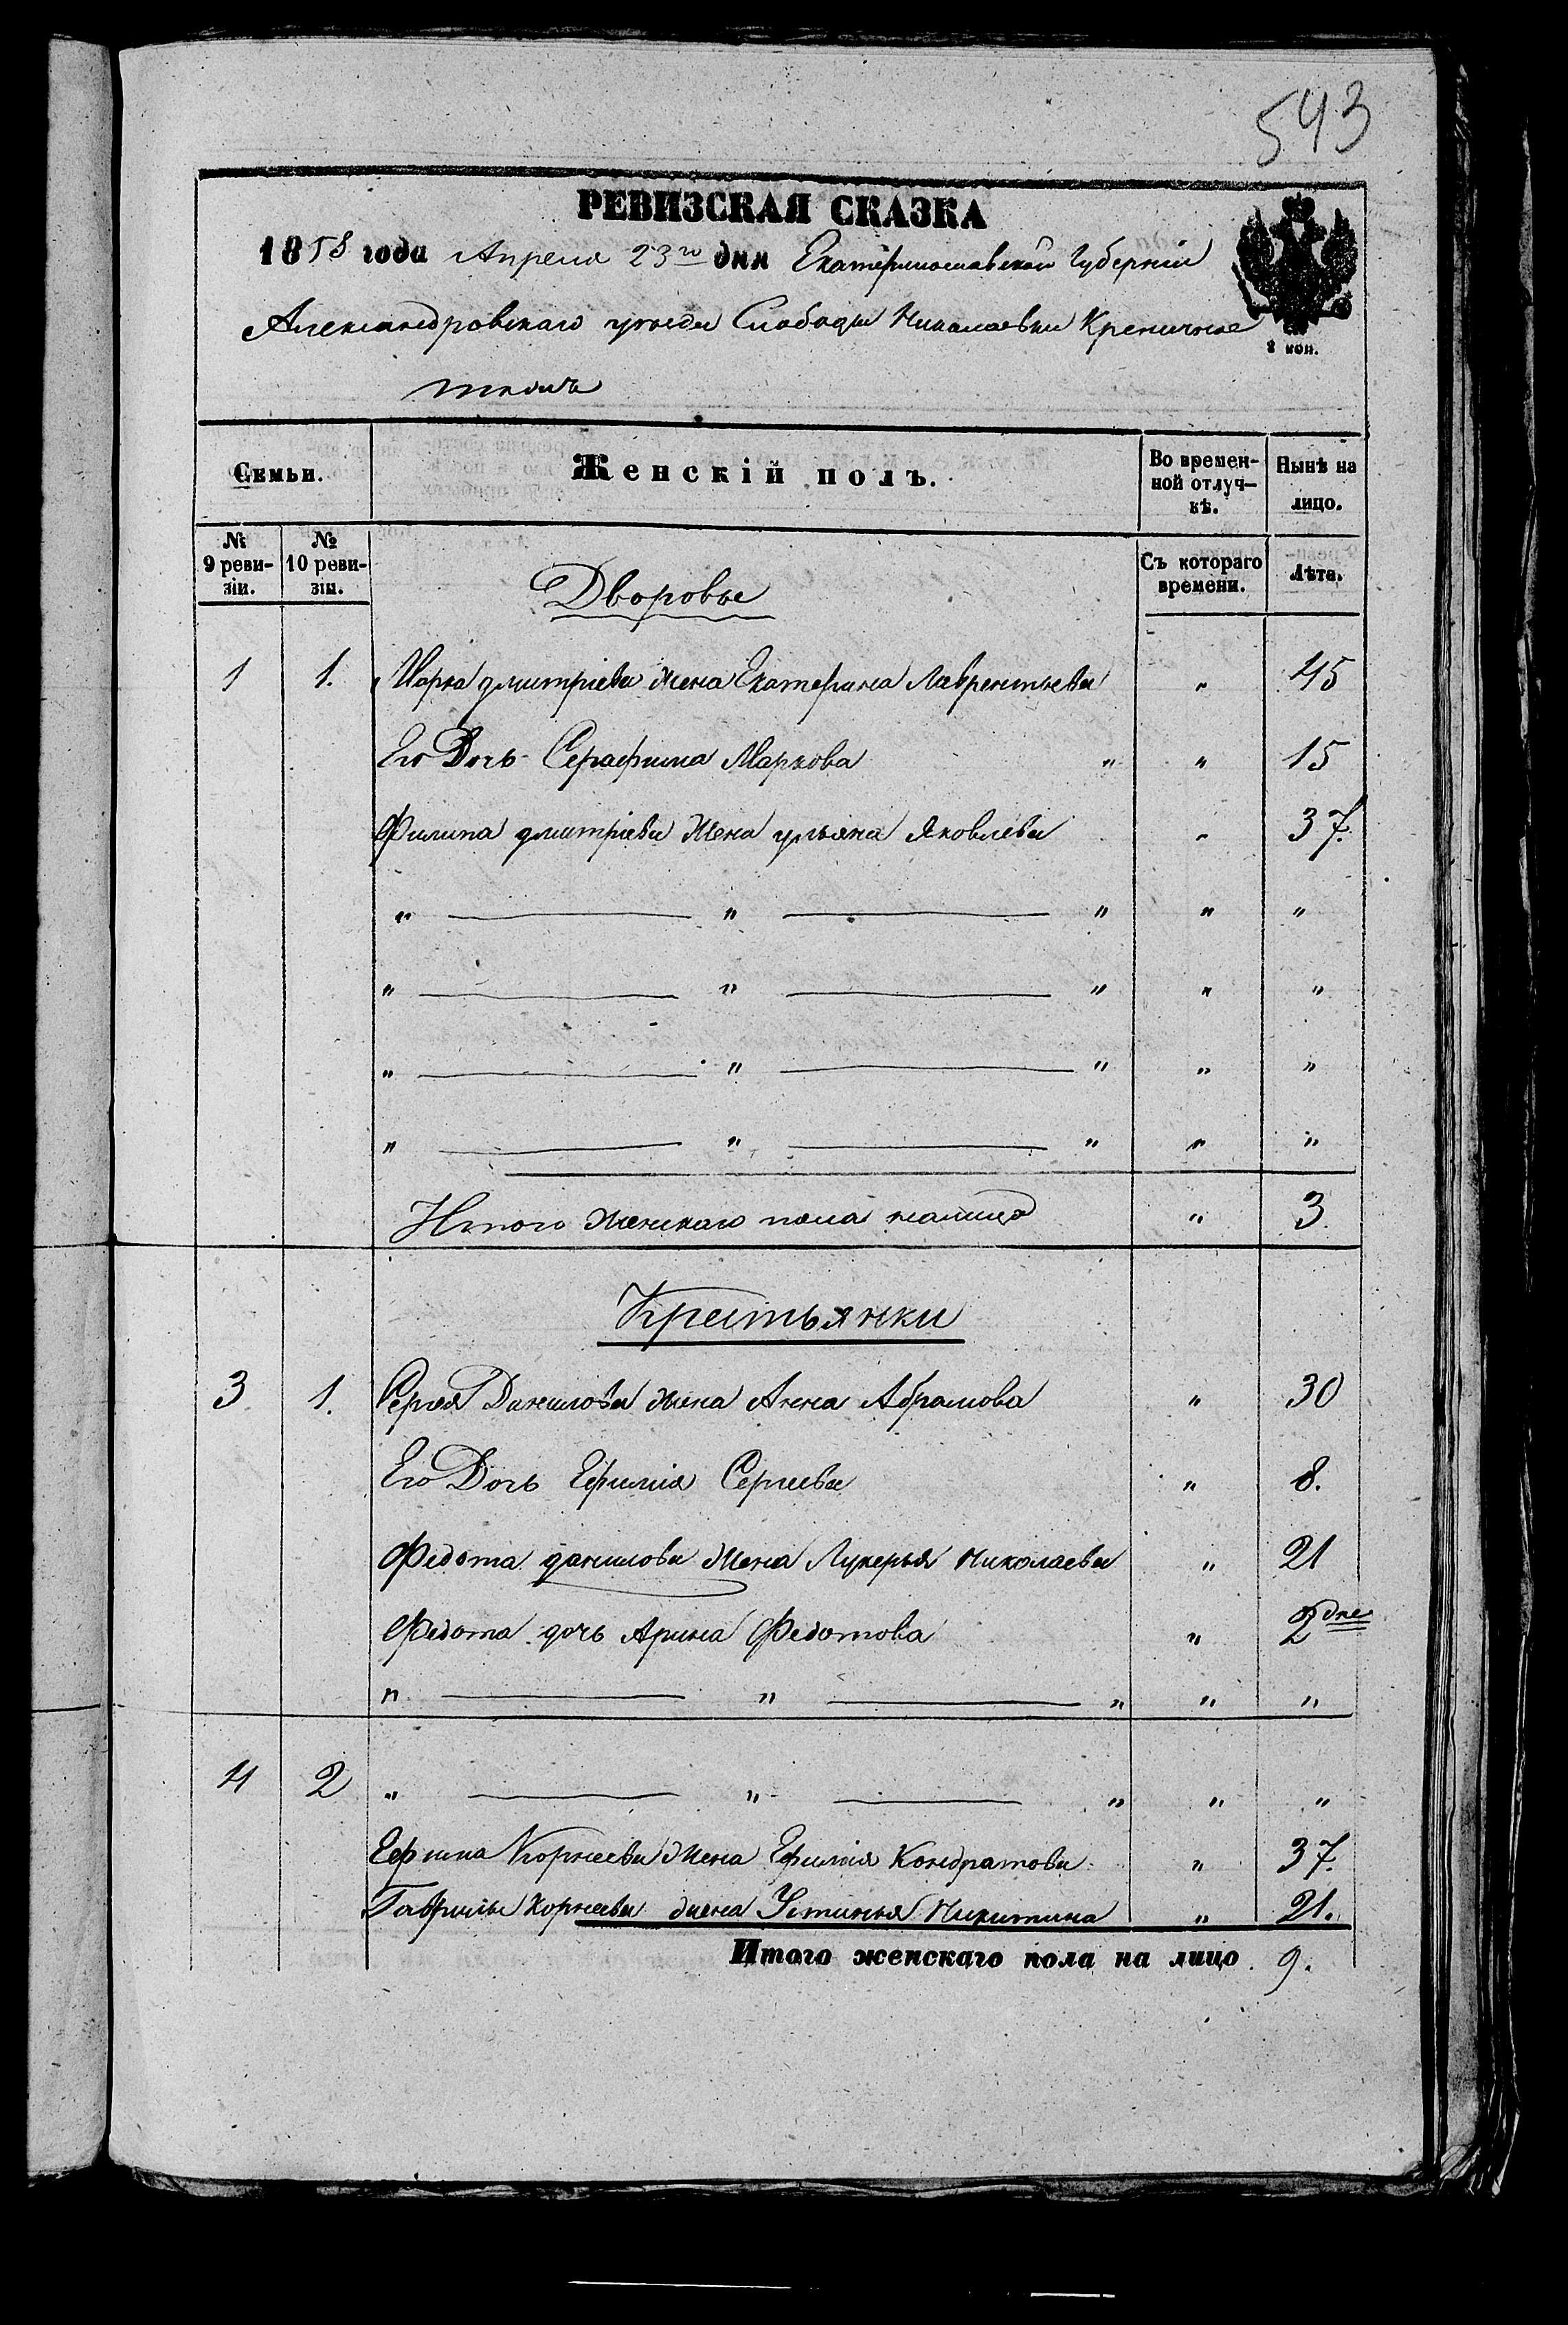 543
РЕВИЗСКАЯ СКАЗКА
1858 года Апреля 23го дня Екатеринославской Губерніи
Александровскаго уѣзда Слободы Николаевки Креничное
тожъ
8 коп.
Семьи. Женскій полъ. Во времен- Нынѣ на
ной отлуч- лицо.
кѣ.
№ № Съ котораго Лѣта.
9 реви- 10 реви- времени.
зіи. зіи.
Дворовые
1 1. Марка дмитріева жена Екатерина Лаврентьева " 45
Его Дочь Серафима Маркова " " 15
Филипа дмитріева Жена ульяна Яковлева " 37.
" — " — " " "
" — " — " " "
" — " — " " "
" — " — " " "
Итого женскаго пола налицо " 3
Крестьянки
3 1. Сергея Данилова жена Анна Абрамова " 30
Его Дочь Ефимія Сергеева " 8.
Федота данилова Жена Лукерья Николаева " 21
Федота дочь Арина Федотова " 2 дне
" — " — " " "
4 2 " — " — " " "
Ефима Корнеева Жена Ефимія Кондратова " 37.
Гаврилы Корнеева жена Устинья Никитина " 21.
Итого женскаго пола на лицо 9.